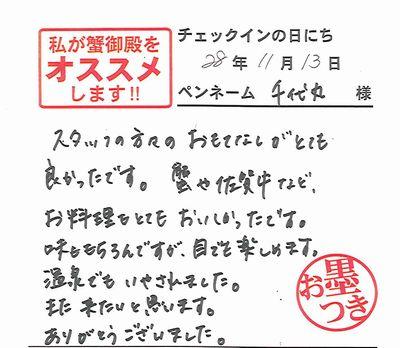 私が蟹御殿を
オススメ
します!!
チェックインの日にち
28年11月13日
ペンネーム 千代丸 様
スタッフの方々のおもてなしがとても
良かったです。蟹や佐賀牛など、
お料理もとてもおいしかったです。
味ももちろんですが、目でも楽しめます。
温泉でもいやされました。
また来たいと思います。
ありがとうございました。
お墨つき